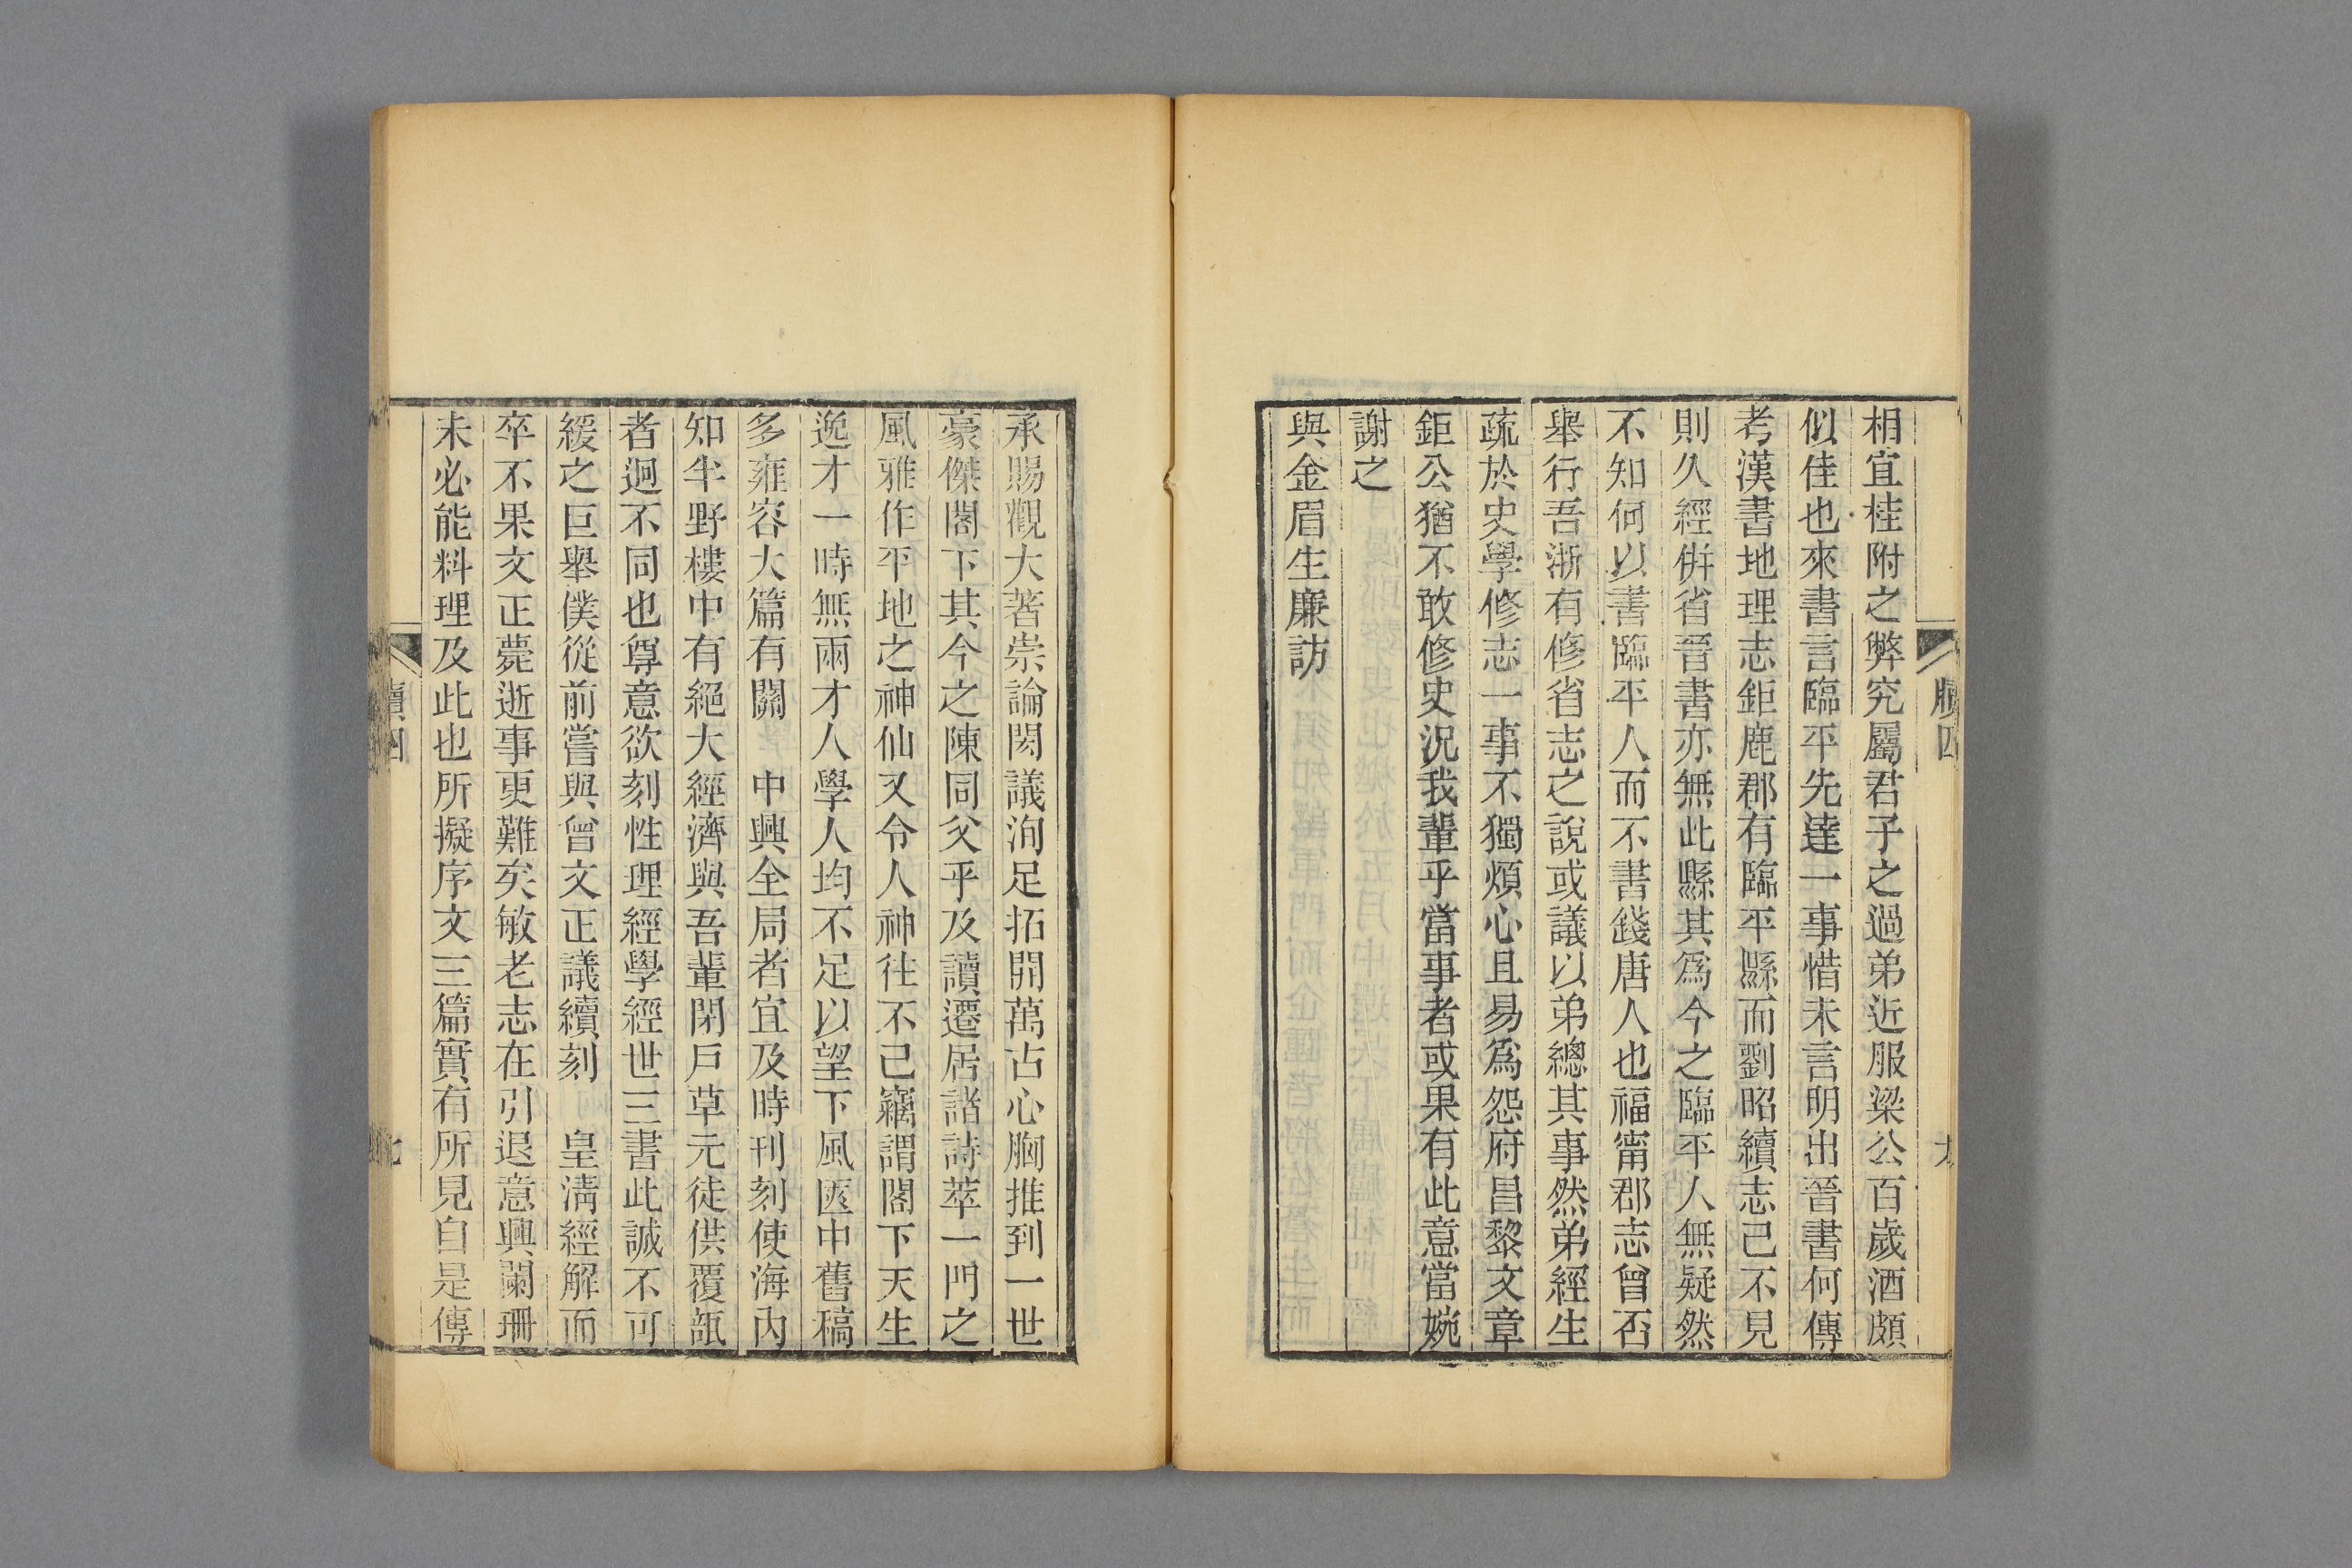 相宜桂附之弊究屬君子之過弟近服梁公百歲酒頗
似佳也來書言臨平先達一事惜未言明出晉書何傳
考漢書地理志鉅鹿郡有臨平縣而劉昭續志己不見
則久經併省晉書亦無此縣其爲今之臨平人無疑然
不知何以書臨平人而不書錢唐人也福甯郡志曾否
舉行吾浙有修省志之說或議以弟總其事然弟經生
疏於史學修志一事不獨煩心且易爲怨府昌黎文章
鉅公猶不敢修史況我輩乎當事者或果有此意當婉
謝之
與金眉生廉訪
承賜觀大著崇論閎議洵足拓開萬古心胸推到一世
豪傑閣下其今之陳同父乎及讀遷居諸詩萃一門之
風雅作平地之神仙又令人神往不己竊謂閣下天生
逸才一時無兩才人學人均不足以望下風匧中舊稿
多雍容大篇有關　中興全局者宜及時刊刻使海內
知半野樓中有絕大經濟與吾輩閉戶草元徒供覆瓿
者迥不同也尊意欲刻性理經學經世三書此誠不可
緩之巨舉僕從前嘗與曾文正議續刻　皇淸經解而
卒不果文正薨逝事更難矣敏老志在引退意興闌珊
未必能料理及此也所擬序文三篇實有所見自是傳
牘四